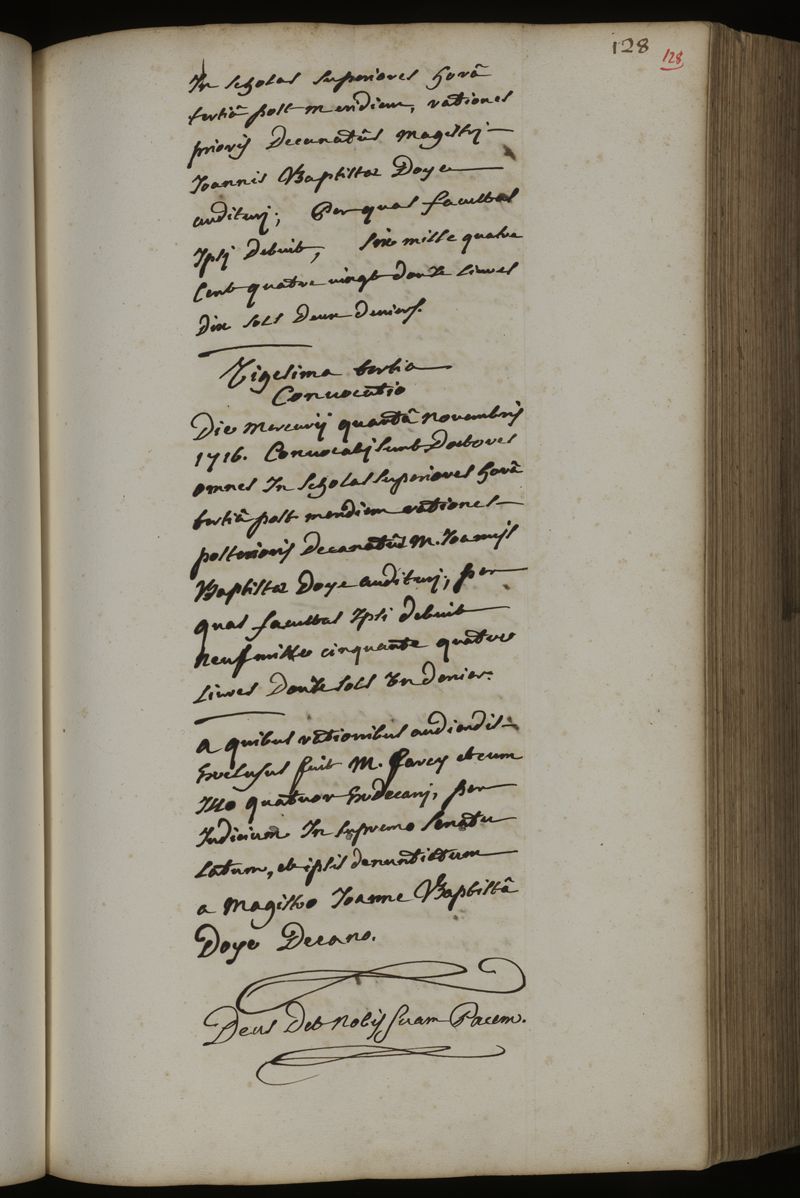 128
128
In scholas superiores horâ
tertiâ post meridiem, rationes
prioris Decanatûs Magistri
Joannis Baptistæ Doye
audituri; Per quas facultas
Ipsi debuit, six mille quatre
Cent quatre vingt douze Livres
Dix sols Deux deniers.
Vigesima tertia
Convocatio
Die Mercurij quartâ novembris
1716. Convocati sunt Doctores
omnes In scholas superiores horâ
tertiâ post meridiem rationes
posterioris Decanatûs M. Joannis
Baptistæ Doye audituri, per
quas facultas Ipsi debuit
neuf mille cinquante quatre
Livres Douze sols Un denier.
A quibus rationibus audiendis
Exclusus fuit M. farcy et cum
Illo quatuor Exdecani, per
Judicium In supremo senatu
Latum, et ipsis denuntiatum
a Magistro Joanne Baptistâ
Doye Decano.
Deus Det nobis suam Pacem.